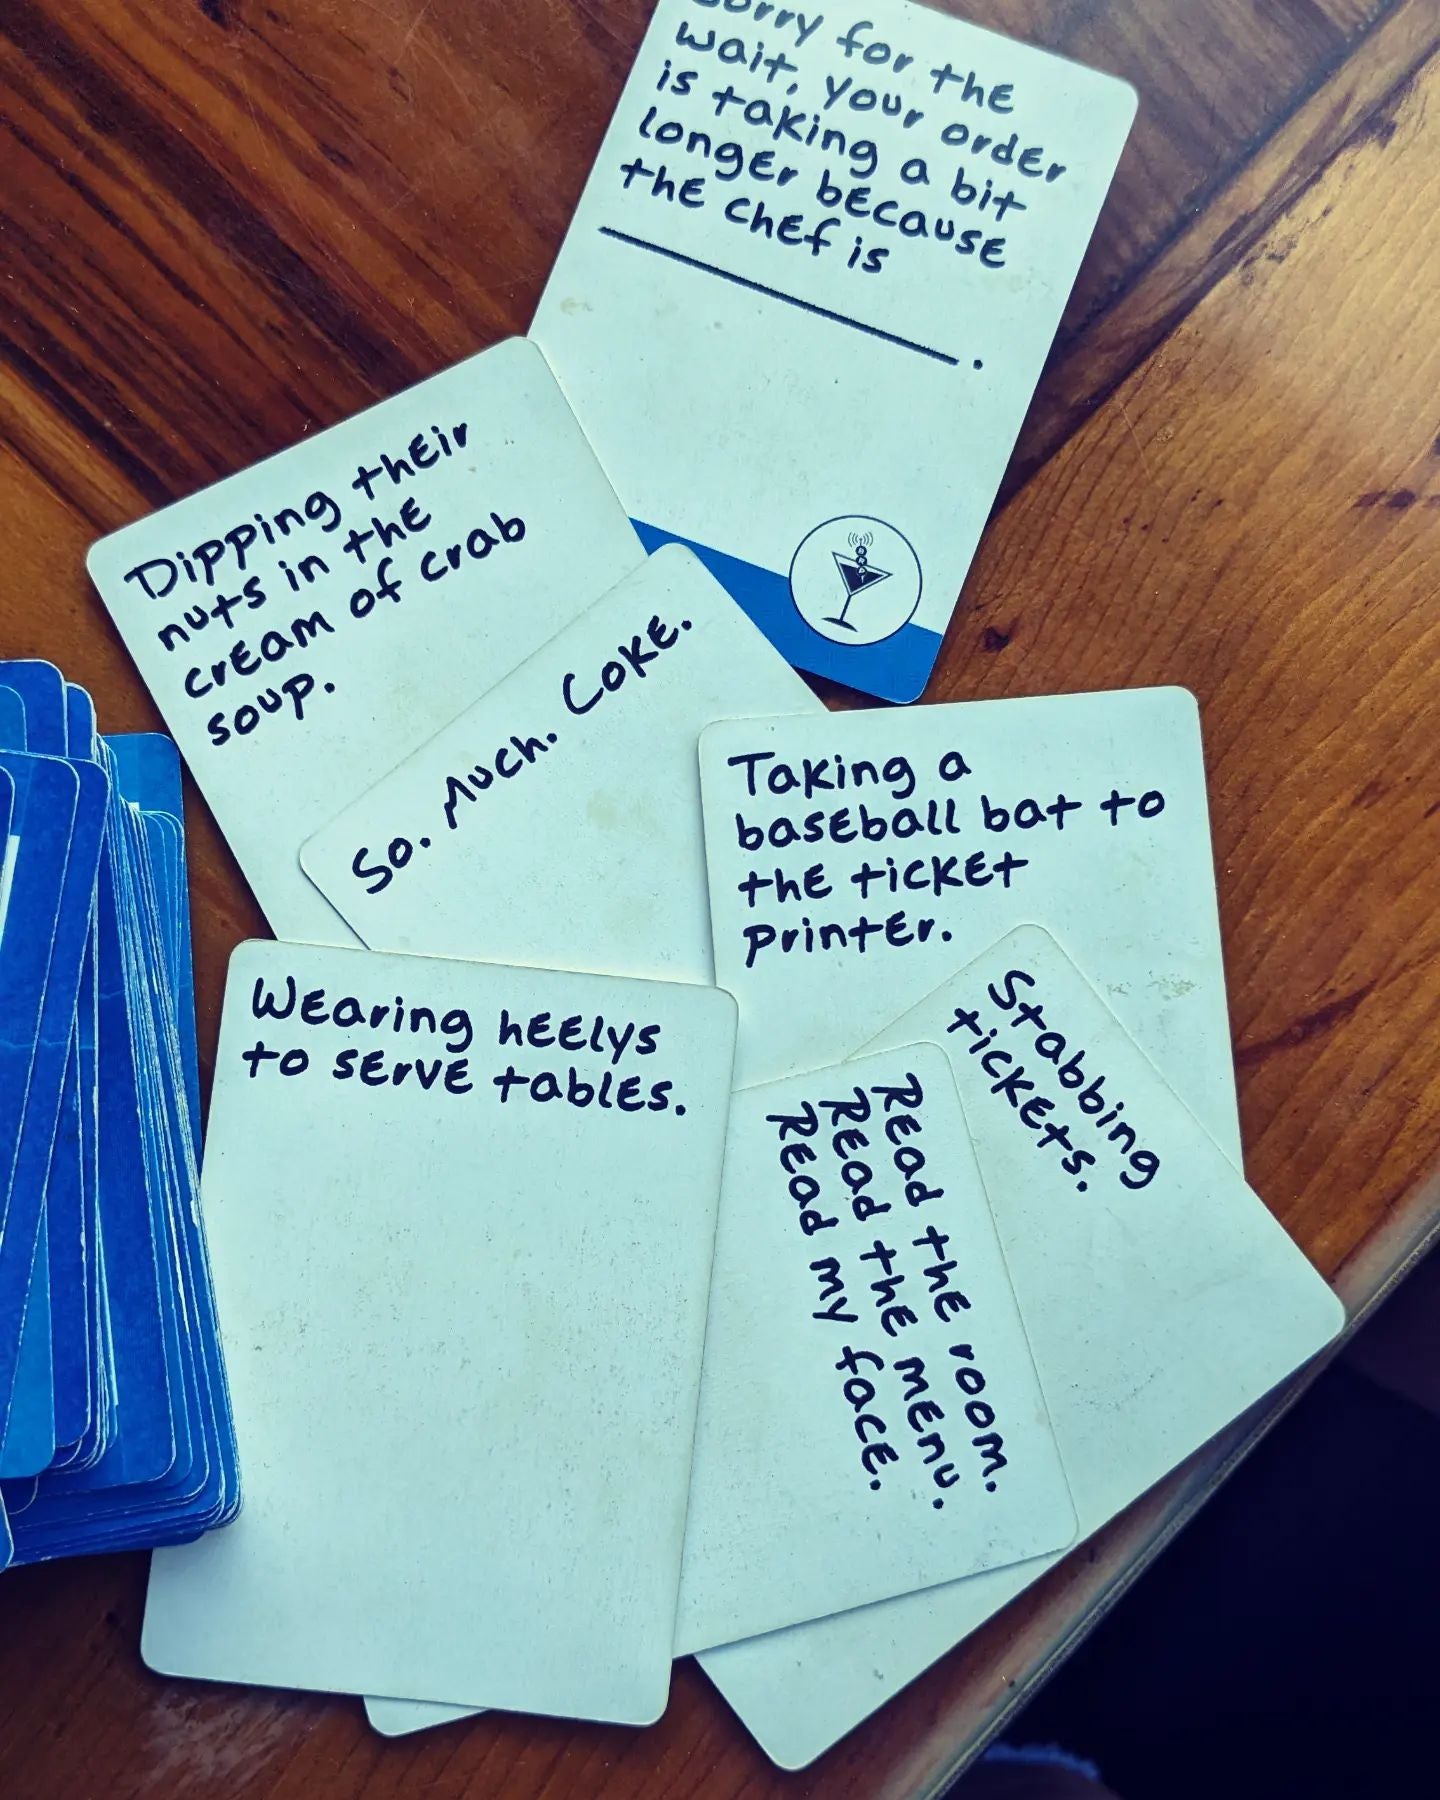 Sorry for the
wait, your order
is taking a bit
longer because
the chef is
.
Dipping their
nuts in the
cream of crab
soup.
So. Much. Coke.
Taking a
baseball bat to
the ticket
printer.
Stabbing
tickets.
Wearing heelys
to serve tables.
Read the room.
Read the menu.
Read my face.